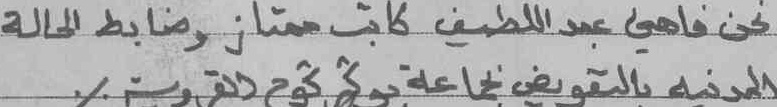 نحن فاهمي عبد اللطيف كاتب ممتاز وضابط الحالة
المدنية بالتفويض لجماعة تموح القروية./.